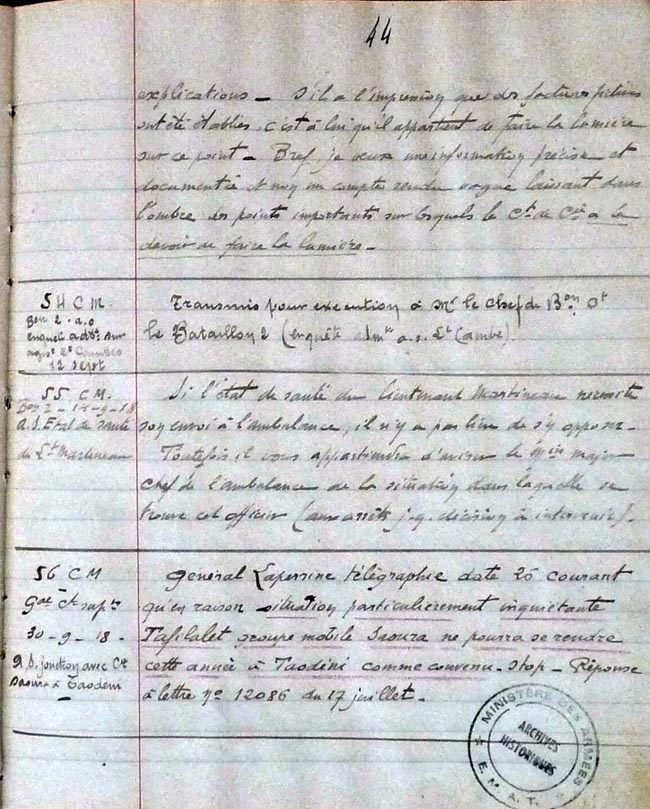 44
explications _ S'il a l'impression que des factures fictives
ont été établies, c'est à lui qu'il appartient de faire la lumière
sur ce point _ Bref, je veux une information précise et
documentée et non un compte rendu vague laissant dans
l'ombre des points importants sur lesquels le Ct de Cie a le
devoir de faire la lumière _
54 C M.
Bon 2 - a.o
enquête adtive sur
Lt Combes
12 Sept
Transmis pour exécution à Mr le Chef de Bon Ct
le Bataillon 2 (enquête admtve a.s. Lt Combe).
55 C M.
Bon 2 - 14-9-18
a.s. Etat de santé
du Lt Martineau
Si l'état de santé du lieutenant Martineau nécessite
son envoi à l'ambulance, il n'y a pas lieu de s'y opposer -
Toutefois il vous appartiendra d'aviser le Mcin major
chef de l'ambulance de la situation dans laquelle se
trouve cet officier (aux arrêts j.q. décision à intervenir).
56 C M
Gal Ct supr
30-9-18.
a.s. jonction avec Ct
Saoura à Taodéni
général Laperrine télégraphie date 25 courant
qu'en raison situation particulièrement inquiétante
Tafilalet groupe mobile Saoura ne pourra se rendre
cette année à Taodéni comme convenu. Stop - Réponse
à lettre No 12086 du 17 juillet.
MINISTÈRE DES ARMÉES
ARCHIVES
HISTORIQUES
E. M. A. T.